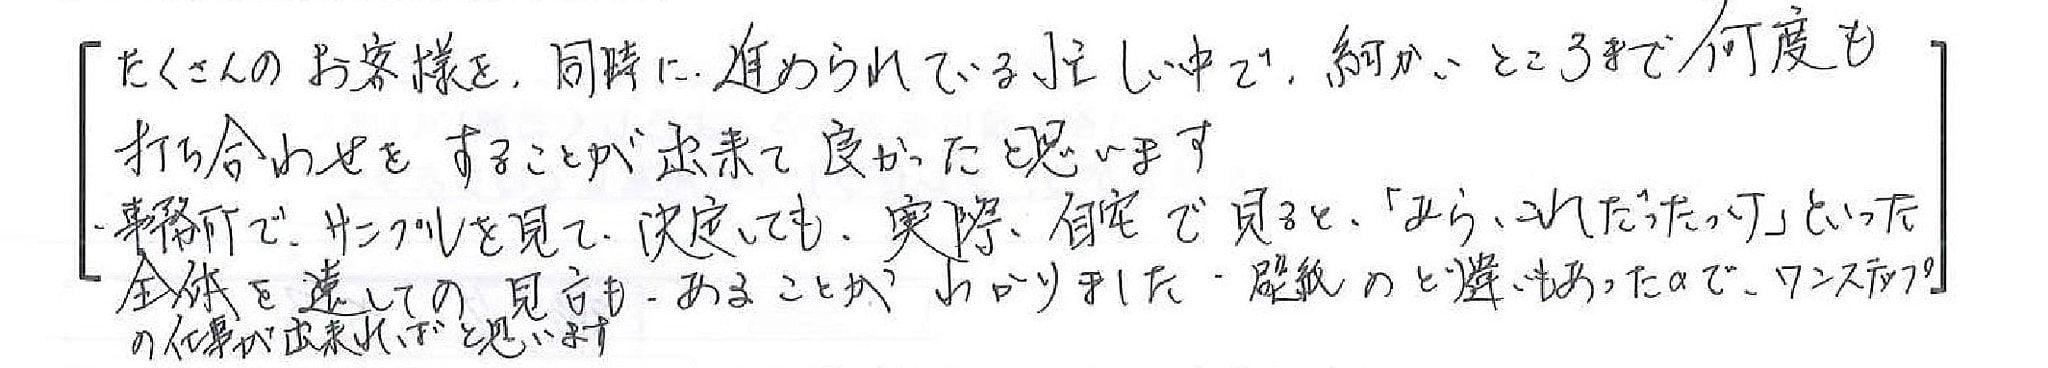 たくさんのお客様を、同時に、進められている忙しい中で、細かいところまで何度も
打ち合わせをすることが出来て良かったと思います
・事務所で、サンプルを見て、決定しても、実際、自宅で見ると、「あら、これだったっけ」といった
全体を通しての見方も、あることがわかりました・壁紙のとり違いもあったので、ワンステップ
の仕事が出来ればと思います